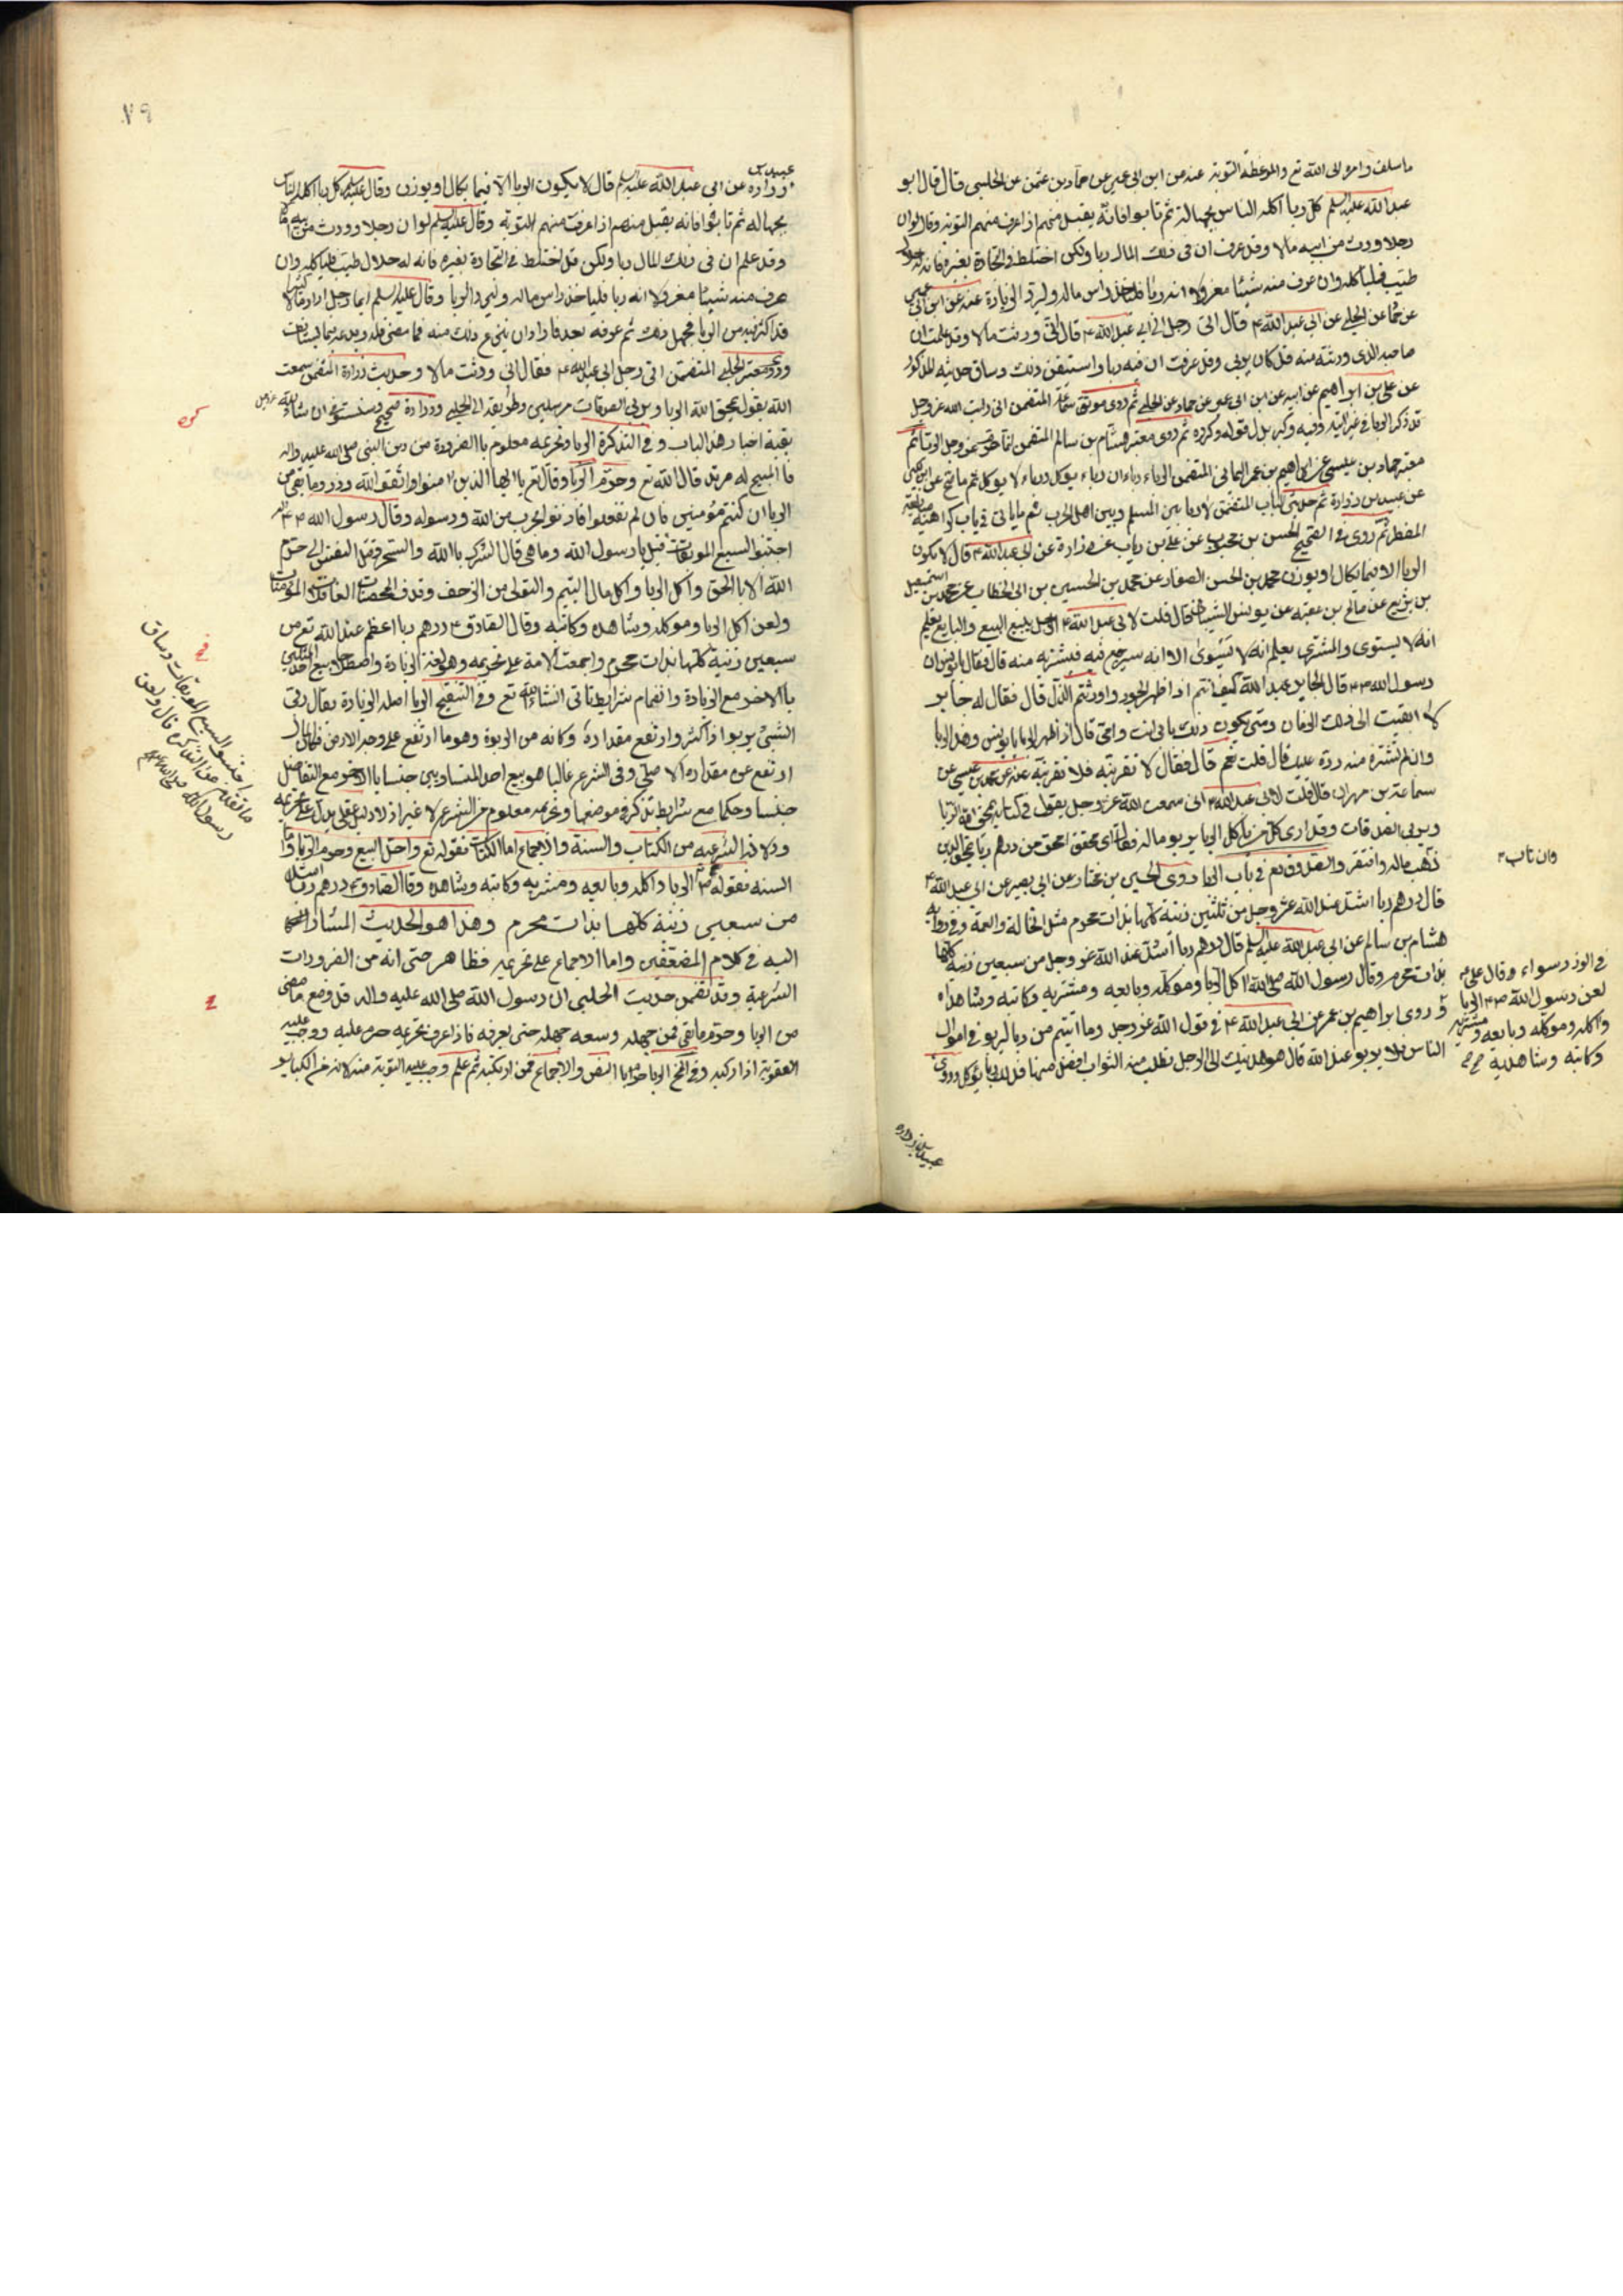 ما سلف وامره الى الله تع والموعظة التوبة عنه عن ابن ابى عمير عن حماد بن عثمن عن الحلبى قال قال ابو
عبد الله عليه السلم كل ربا اكله الناس بجهالة ثم تابوا فانه يقبل منهم اذا عرف منهم التوبة وقال لو ان
رجلا ورث من ابيه مالا وقد عرف ان فى ذلك المال ربا ولكن اختلط فى التجارة بغيره فانه له حلال
طيب فليأكله وان عرف منه شيئا معزولا انه ربا فليأخذ راس ماله وليرد الزيادة عنه عن ابن ابى عمير
عن حماد عن الحلبى عن ابى عبد الله ع قال اتى رجل الى ابى عبد الله ع قال انى ورثت مالا وقد علمت ان
صاحبه الذى ورثته منه قد كان يربى وقد عرفت ان فيه ربا واستيقن ذلك وساق حديثه المذكور
عن على بن ابراهيم عن ابيه عن ابن ابى عمير عن حماد عن الحلبى ثم روى موثق سماعة المتضمن انى رايت الله عز وجل
قد ذكر الربا فى غير اية وفيه وكبر بدل قوله وكرره ثم روى معتبر هشام بن سالم المتضمن انما حرم الله عز وجل الربا ثم
معتبر حماد بن عيسى عن ابراهيم بن عمر اليمانى المتضمن الرباء رباءان رباء يوكل ورباء لا يوكل ثم
عن عبيد بن زرارة ثم حديثى الباب المتضمن لا ربا بين المسلم وبين اهل الحرب ثم ما ياتى فى باب كراهية
المضطر ثم روى فى الصحيح الحسن بن محبوب عن على بن رياب عن زرارة عن ابى عبد الله ع قال لا يكون
الربا الا فيما يكال او يوزن محمد بن الحسن الصفار عن محمد بن الحسين بن ابى الخطاب عن محمد بن اسمعيل
بن بزيع عن صالح بن عقبه عن يونس الشيبانى قال قلت لابى عبد الله ع الرجل يبيع البيع والبايع يعلم
انه لا يستوى والمشترى يعلم انه لا يستوى الا انه سيرجع فيه فيشتريه منه قال فقال يا يونس ان
رسول الله ص قال لجابر بن عبد الله كيف انتم اذا ظهر الجور واورثتم الذل قال فقال له جابر
لا ابقيت الى ذلك الزمان ومتى يكون ذلك بابى انت وامى قال اذا ظهر الربا يا يونس وهذا الربا
وان لم تشتره منه رده عليك قال قلت نعم قال فقال لا تقربنه فلا تقربنه عنه عن محمد بن عيسى عن
سماعة بن مهران قال قلت لابى عبد الله ع انى سمعت الله عز وجل يقول فى كتابه يمحق الله الربا
ويربى الصدقات وقد ارى كل من ياكل الربا يربو ماله فقال اى محق امحق من درهم ربا يمحق الدين
ذهب ماله وافتقر والصدوق تع فى باب الربا روى الحسين بن مختار عن ابى بصير عن ابى عبد الله ع
قال درهم ربا اشد عند الله عز وجل من ثلثين زنية كلها بذات محرم مثل الخالة والعمة وفى رواية
هشام بن سالم عن ابى عبد الله عليه السلم قال درهم ربا اشد عند الله عز وجل من سبعين زنية كلها
بذات محرم وقال رسول الله صلى الله اكل الربا وموكله وبايعه ومشتريه وكاتبه وشاهداه
وروى ابراهيم بن عمر عن ابى عبد الله ع فى قول الله عز وجل وما اتيتم من ربا ليربو فى اموال
الناس فلا يربو عند الله قال هو هديتك الى الرجل تطلب منه الثواب افضل منها فذلك ربا يؤكل وروى
وان تاب
فى الوزر سواء وقال على ع
لعن رسول الله ص الربا
واكله وموكله وبايعه ومشتريه
وكاتبه وشاهديه
عبيد بن زراره
عبيد بن
زرارة عن ابى عبد الله عليه السلم قال لا يكون الربا الا فيما يكال او يوزن وقال عليه السلم كل ربا اكله الناس
بجهاله ثم تابوا فانه يقبل منهم اذا عرف منهم التوبة وقال عليه السلم لو ان رجلا ورث من ابيه مالا
وقد علم ان فى ذلك المال ربا ولكن قد اختلط فى التجارة بغيره فانه له حلال طيب فلياكله وان
عرف منه شيئا معزولا انه ربا فلياخذ راس ماله وليرد الربا وقال عليه السلم ايما رجل افاد مالا كثيرا
قد اكثر فيه من الربا فجهل ذلك ثم عرفه بعد فاراد ان ينزع ذلك منه فما مضى فله ويدعه فيما يستانف
وروى معتبر الحلبى المتضمن اتى رجل ابى عبد الله ع فقال انى ورثت مالا وحديث زرارة المتضمن سمعت
الله يقول يمحق الله الربا ويربى الصدقات مرسلين وطريقه الى الحلبى وزرارة صحيح وستستوفى ان شاء الله
بقية اخبار هذا الباب و فى التذكرة الربا وتحريمه معلوم بالضرورة من دين النبى صلى الله عليه واله
فالمبيح له مرتد قال الله تع وحرم الربا وقال تع يا ايها الذين امنوا اتقوا الله وذروا ما بقى من
الربا ان كنتم مؤمنين فان لم تفعلوا فاذنوا بحرب من الله ورسوله وقال رسول الله ص
اجتنبوا السبع الموبقات قيل يا رسول الله وما هى قال الشرك بالله والسحر وقتل النفس التى حرم
الله الا بالحق واكل الربا واكل مال اليتيم والتولى من الزحف وقذف المحصنات الغافلات المؤمنات
ولعن اكل الربا وموكله وشاهده وكاتبه وقال الصادق ع درهم ربا اعظم عند الله تع من
سبعين زنية كلها بذات محرم واجمعت الامة على تحريمه وهو لغة الزيادة واصطلاحا بيع احد المثلين
بالاخر مع الزيادة وانضمام شرايط تاتى انشاء الله تع و فى التنقيح الربا اصله الزيادة يقال ربى
الشئ يربو اذا كثر وارتفع مقداره وكانه من الربوة وهو ما ارتفع على وجه الارض فالمال
ارتفع عن مقداره الاصلى وفى الشرع غالبا هو بيع احد المتساويين جنسا بالاخر مع التفاضل
جنسا وحكما مع شرايط تذكر فى موضعها وتحريمه معلوم من الشرع لا غير اذ لا دليل عقلى يدل على تحريمه
ودلائله الشرعيه من الكتاب والسنة والاجماع اما الكتاب فقوله تع واحل البيع وحرم الربا واما
السنه فقوله ص الربا واكله وبايعه ومشتريه وكاتبه وشاهده وقال الصادق ع درهم ربا اشد
من سبعين زنية كلها بذات محرم وهذا هو الحديث المشار
اليه فى كلام المصنفين واما الاجماع على تحريمه فظاهر حتى انه من الضرورات
الشرعية وقد تضمن حديث الحلبى ان رسول الله صلى الله عليه واله قد وضع ما مضى
من الربا وحرم ما بقى فمن جهله وسعه جهله حتى يعرفه فاذا عرف تحريمه حرم عليه ووجب عليه
العقوبة اذا ركبه وفى الربا حرام بالنص والاجماع فمن ارتكبه ثم علم وجب عليه التوبة منه لانه من الكبائر
اجتنبوا السبع الموبقات وساق
ما تقدم عن التذكرة قال ولعن
رسول الله صلى الله عليه